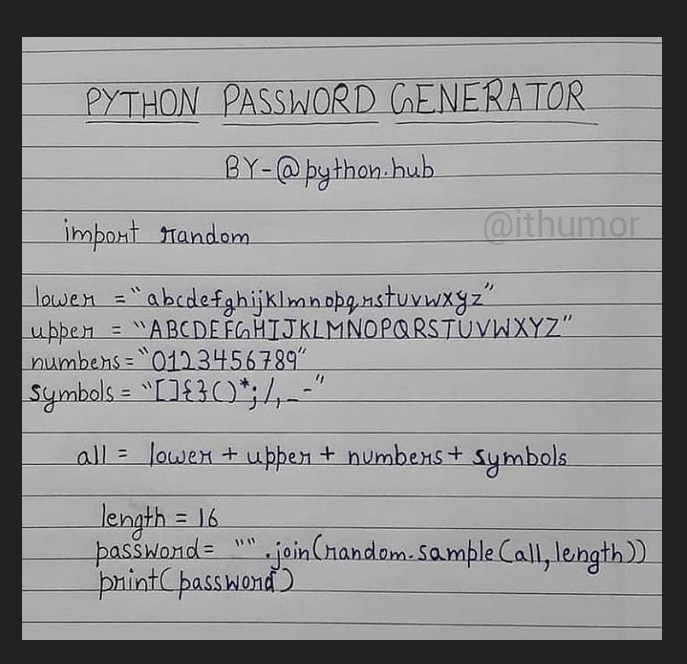 PYTHON PASSWORD GENERATOR
BY-@python.hub
@ithumor
import random
lower = "abcdefghijklmnopqrstuvwxyz"
upper = "ABCDEFGHIJKLMNOPQRSTUVWXYZ"
numbers = "0123456789"
symbols = "[]{}()*;/,_-"
all = lower + upper + numbers + symbols
length = 16
password = "".join(random.sample(all, length))
print(password)